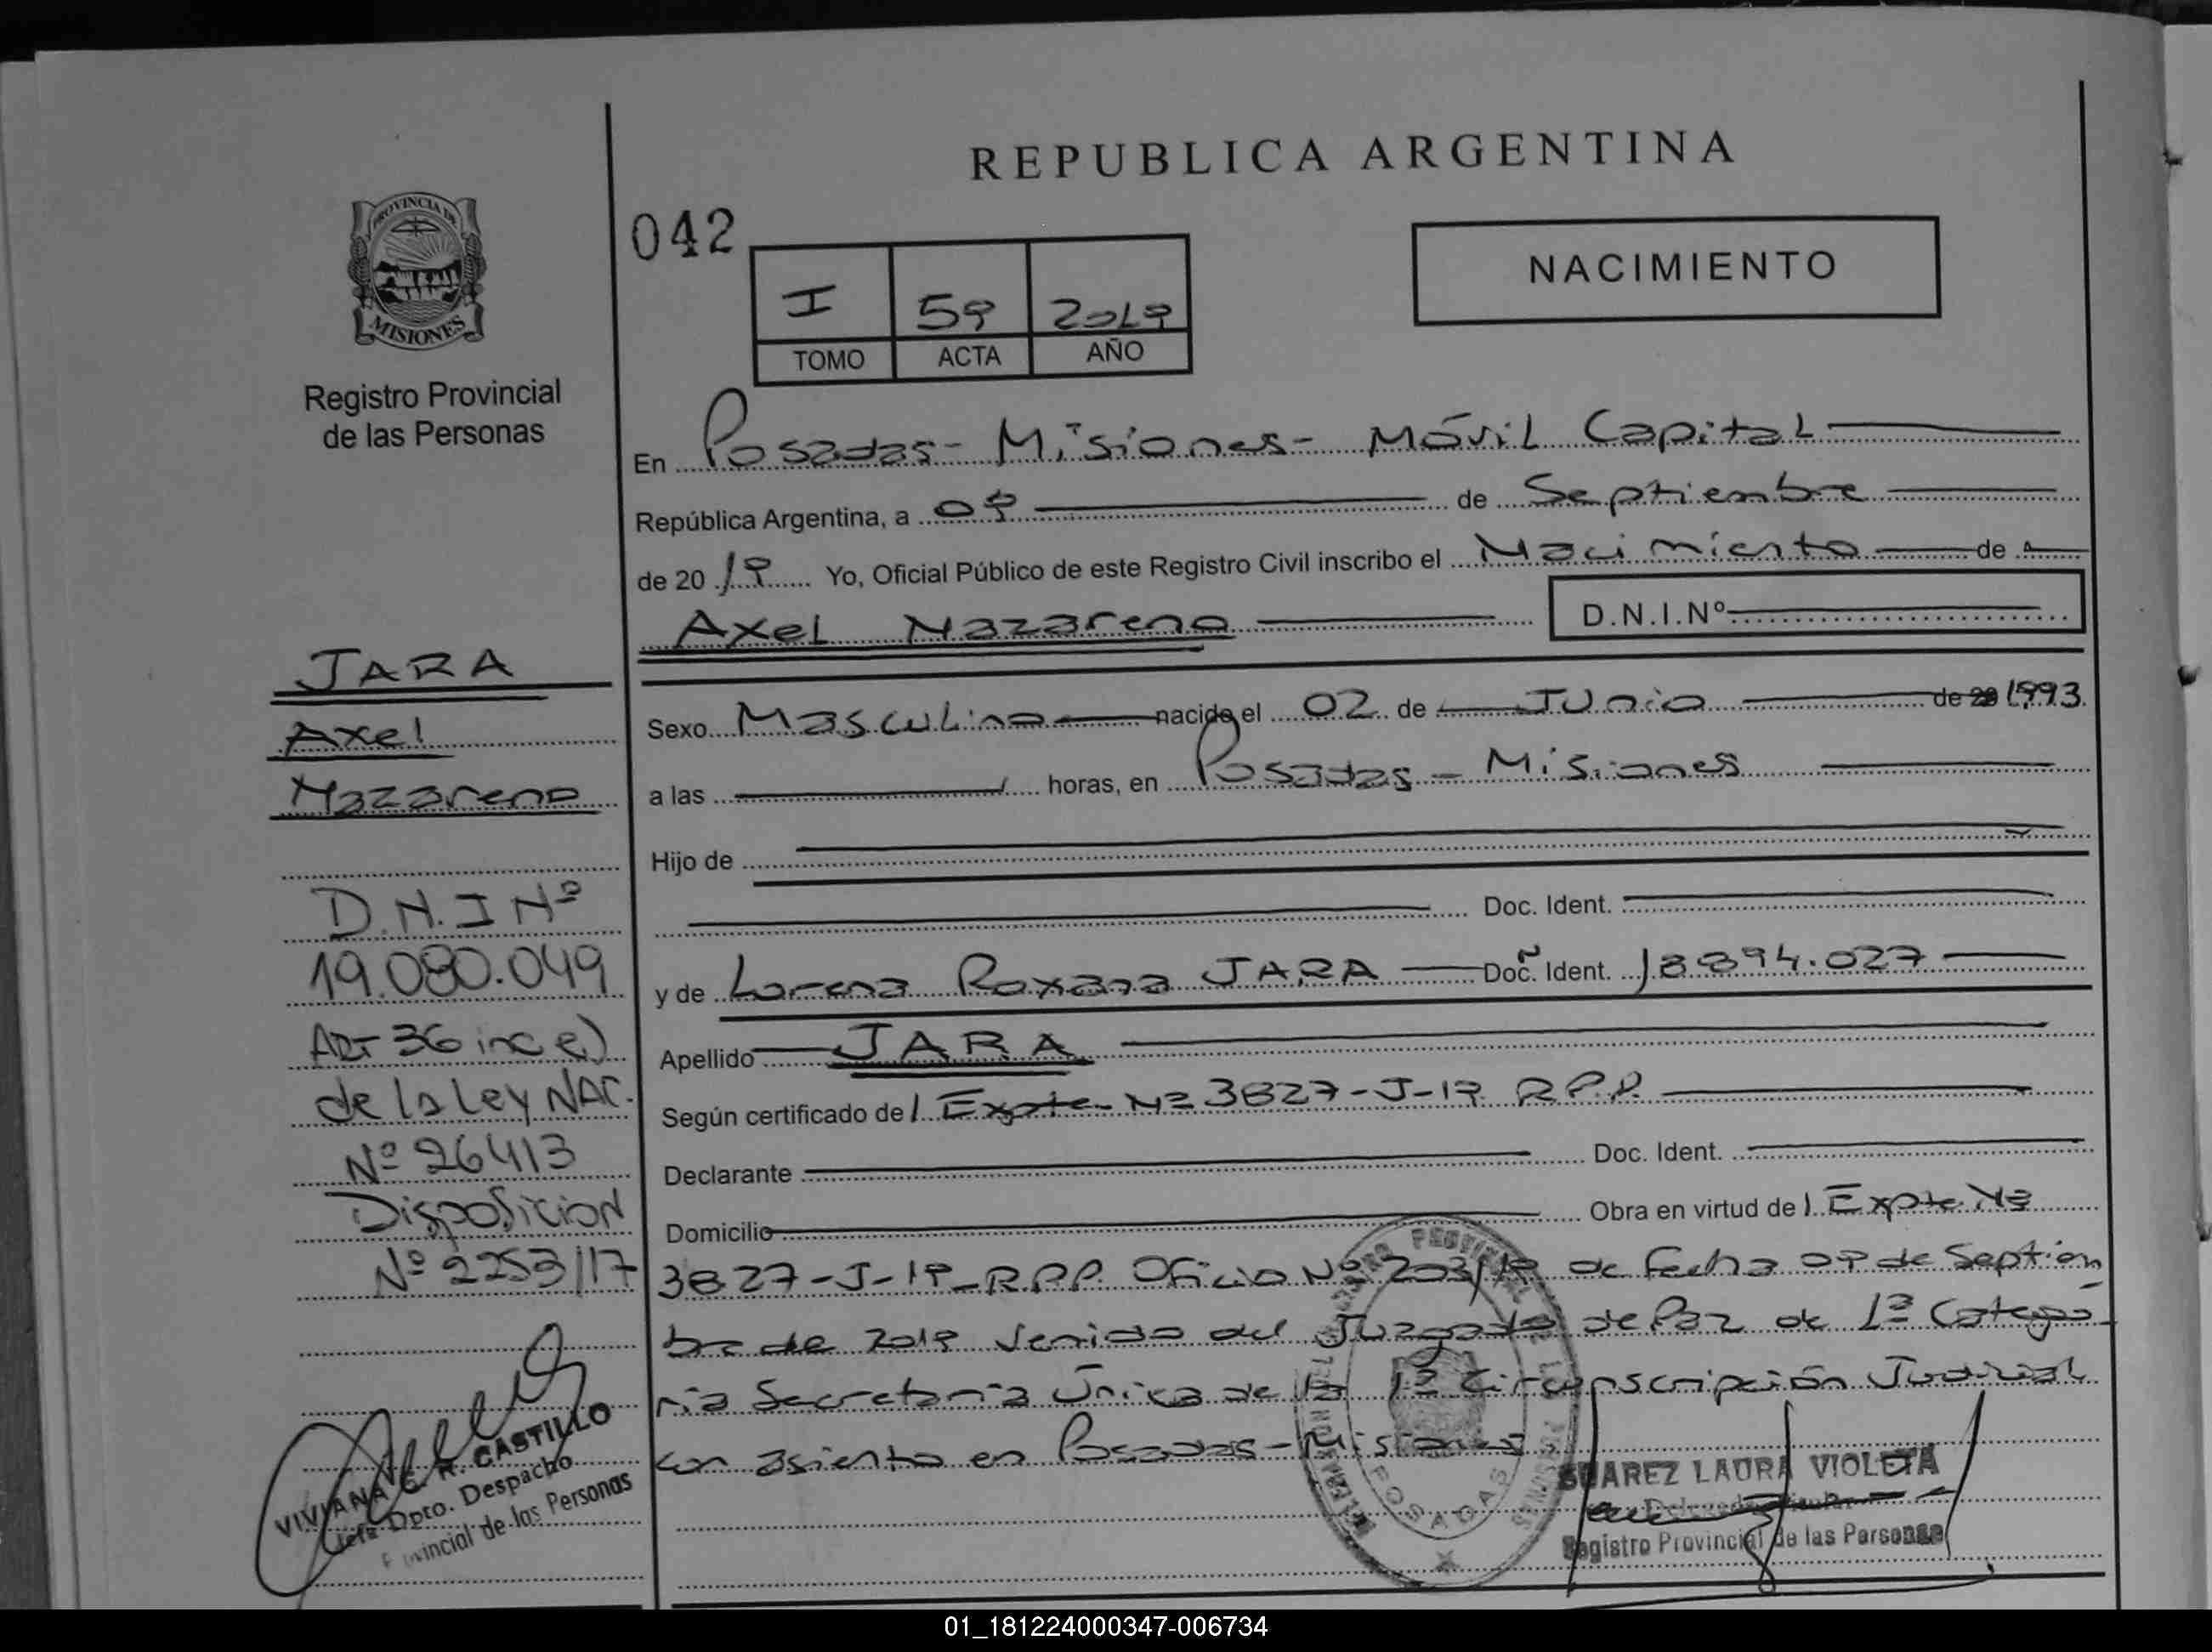 REPUBLICA ARGENTINA
PROVINCIA DE
MISIONES
Registro Provincial
de las Personas
042
NACIMIENTO
I 59 2019
TOMO ACTA AÑO
En Posadas - Misiones - Móvil Capital
República Argentina, a 09 de Septiembre
de 2019 Yo, Oficial Público de este Registro Civil inscribo el Nacimiento de
Axel Nazareno D.N.I.Nº
JARA
Axel
Nazareno
D.N.I Nº
19.080.049
ART 36 inc e)
de la Ley NAC.
Nº 26413
Disposicion
Nº 2253/17
VIVIANA G. R. CASTILLO
Jefa Dpto. Despacho
Provincial de las Personas
Sexo Masculino nacido el 02 de Junio de 20 1993.
a las horas, en Posadas - Misiones
Hijo de
Doc. Ident.
y de Lorena Roxana JARA Doc. Ident. 18.894.027
Apellido JARA
Según certificado del Expte Nº 3827-J-19 R.P.P.
Declarante Doc. Ident.
Domicilio Obra en virtud del Expte Nº
3827-J-19-R.P.P. Oficio Nº 203/19 de fecha 09 de Septiem
bre de 2019 venido del Juzgado de Paz de 1ª Catego
ria Secretaria Única de la 1ª Circunscripción Judicial
con asiento en Posadas - Misiones
POSADAS
SUAREZ LAURA VIOLETA
Registro Provincial de las Personas
01_181224000347-006734